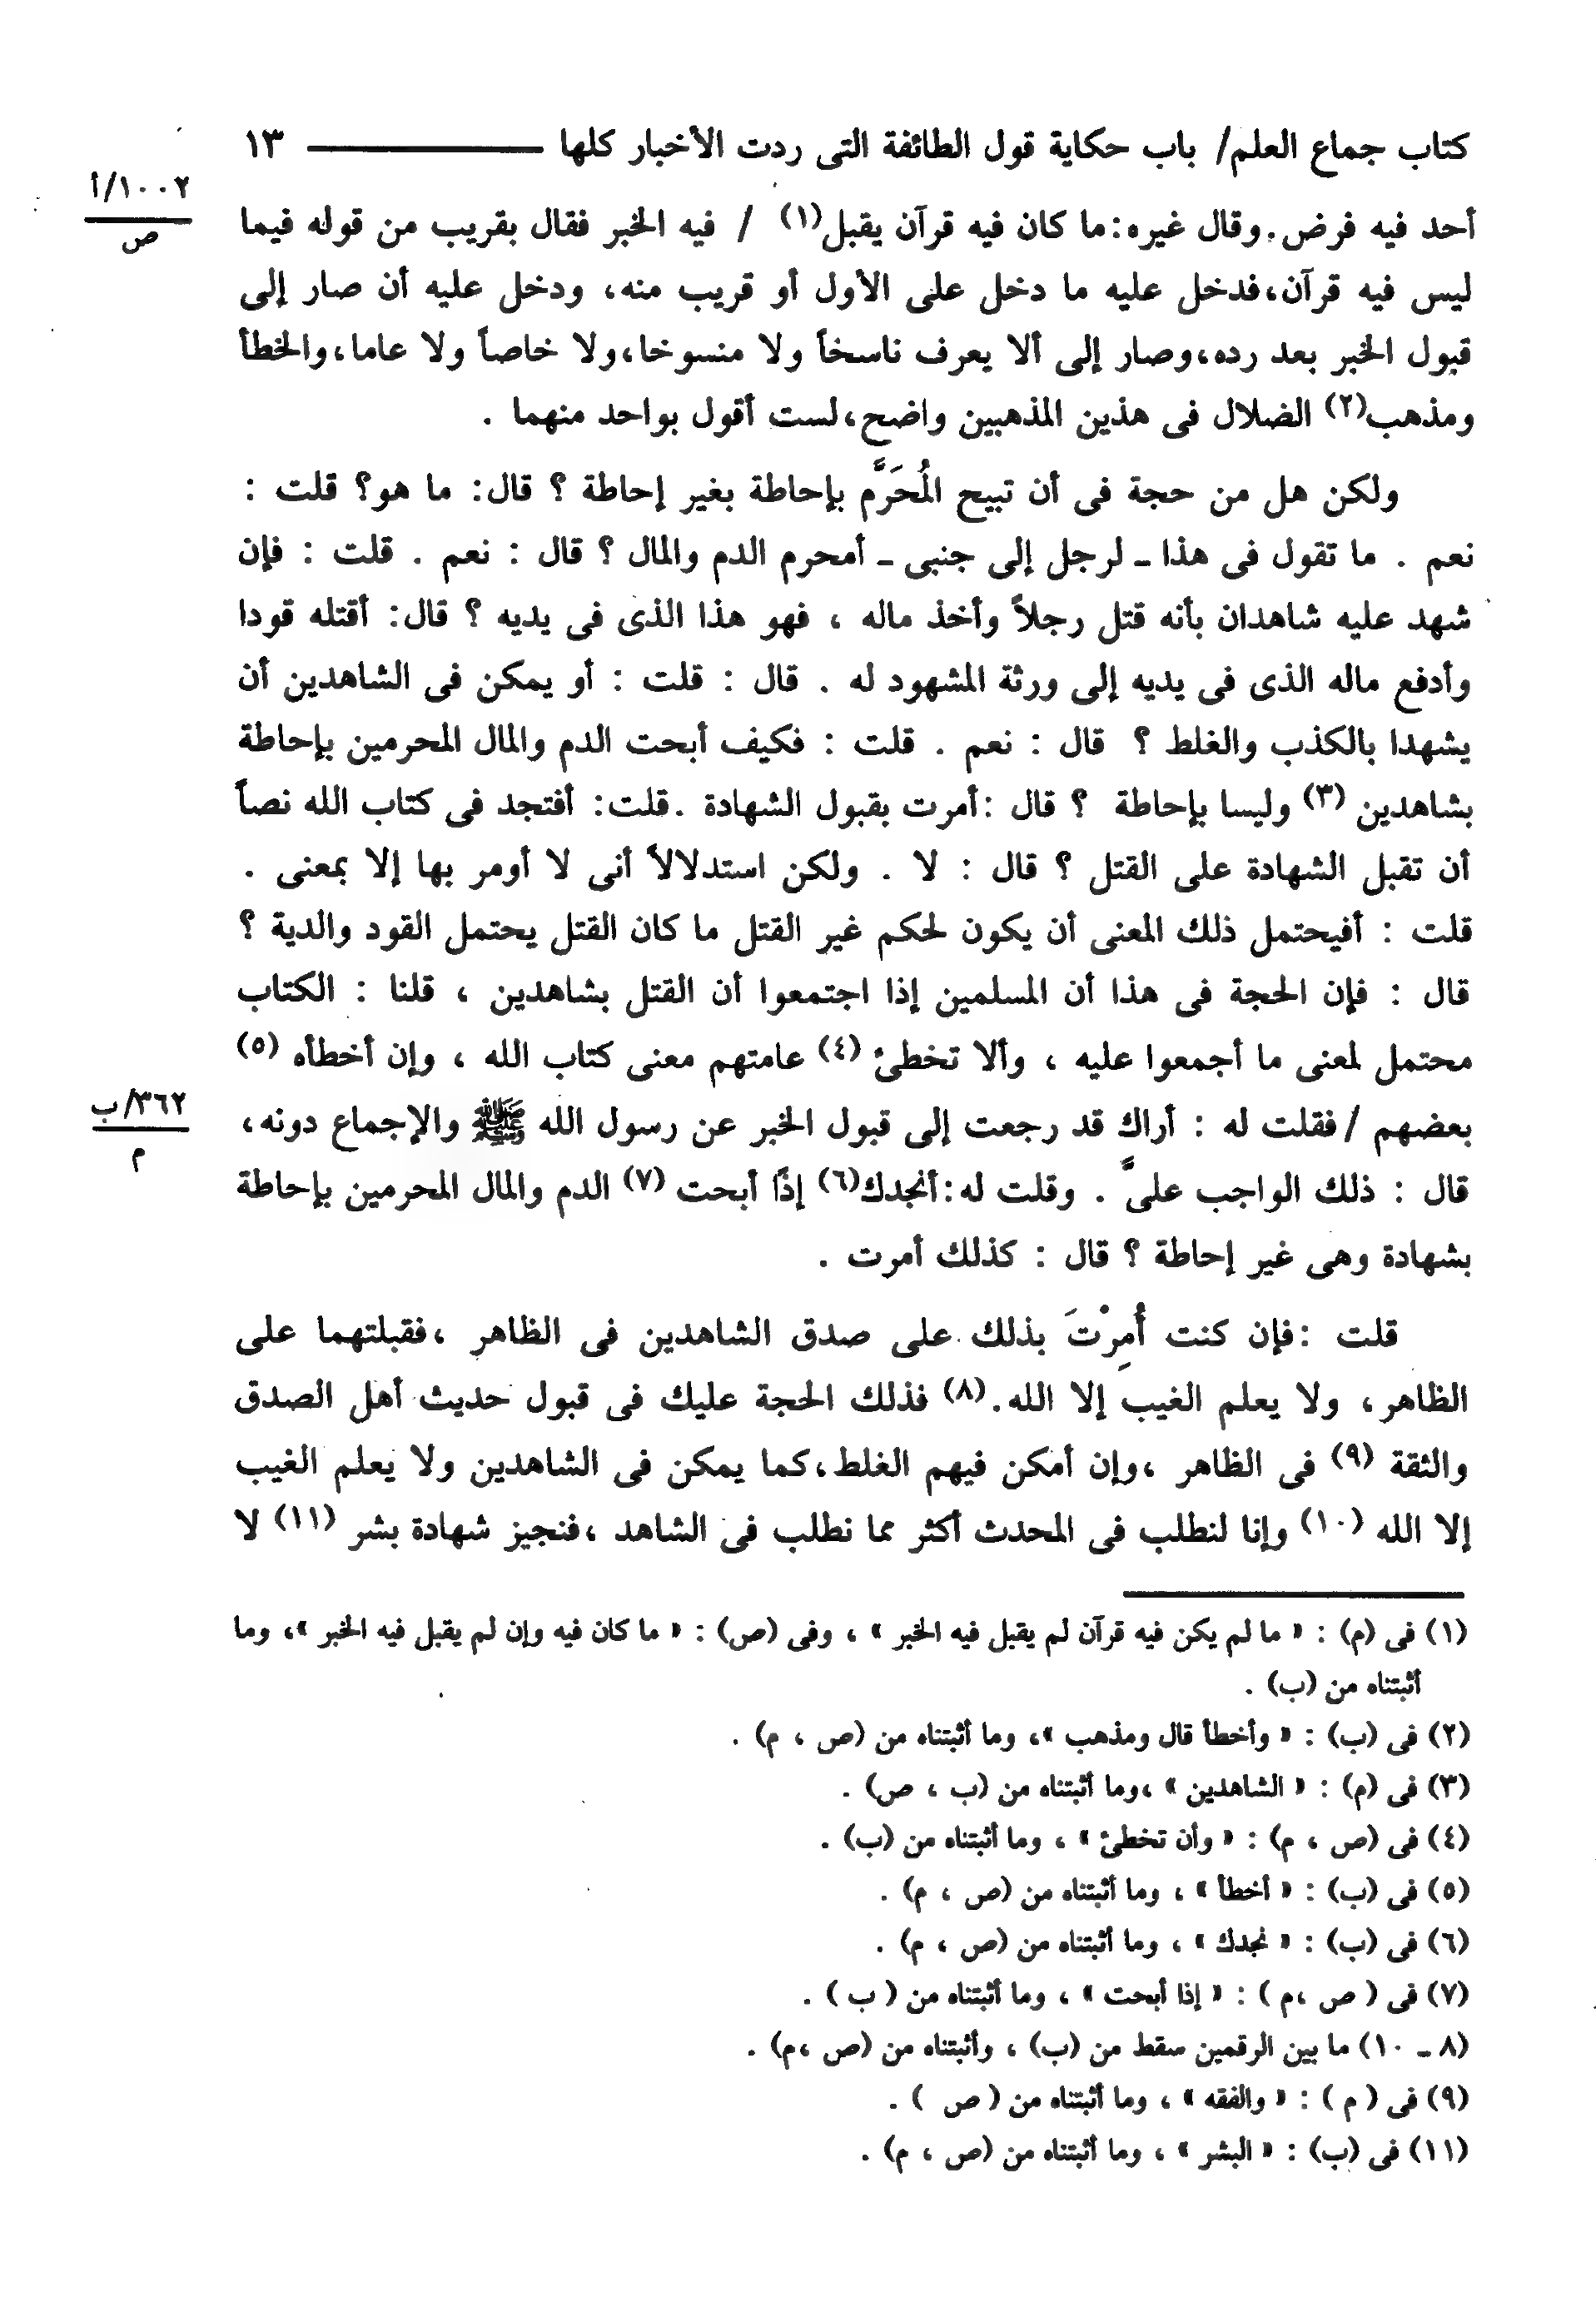 كتاب جماع العلم/ باب حكاية قول الطائفة التى ردت الأخبار كلها ـــــــــ ١٣
١٠٠٢/أ
ص
أحد فيه فرض. وقال غيره: ما كان فيه قرآن يقبل(١) / فيه الخبر فقال بقريب من قوله فيما
ليس فيه قرآن،فدخل عليه ما دخل على الأول أو قريب منه، ودخل عليه أن صار إلى
قبول الخبر بعد رده،وصار إلى ألا يعرف ناسخاً ولا منسوخا،ولا خاصاً ولا عاما،والخطأ
ومذهب(٢) الضلال فى هذين المذهبين واضح،لست أقول بواحد منهما .
ولكن هل من حجة فى أن تبيح المُحَرَّم بإحاطة بغير إحاطة ؟ قال: ما هو؟ قلت :
نعم . ما تقول فى هذا ـ لرجل إلى جنبى ـ أمحرم الدم والمال ؟ قال : نعم . قلت : فإن
شهد عليه شاهدان بأنه قتل رجلاً وأخذ ماله ، فهو هذا الذى فى يديه ؟ قال: أقتله قودا
وأدفع ماله الذى فى يديه إلى ورثة المشهود له . قال : قلت : أو يمكن فى الشاهدين أن
يشهدا بالكذب والغلط ؟ قال : نعم . قلت : فكيف أبحت الدم والمال المحرمين بإحاطة
بشاهدين (٣) وليسا بإحاطة ؟ قال :أمرت بقبول الشهادة .قلت: أفتجد فى كتاب الله نصاً
أن تقبل الشهادة على القتل ؟ قال : لا . ولكن استدلالاً أنى لا أومر بها إلا بمعنى .
قلت : أفيحتمل ذلك المعنى أن يكون لحكم غير القتل ما كان القتل يحتمل القود والدية ؟
قال : فإن الحجة فى هذا أن المسلمين إذا اجتمعوا أن القتل بشاهدين ، قلنا : الكتاب
محتمل لمعنى ما أجمعوا عليه ، وألا تخطئ (٤) عامتهم معنى كتاب الله ، وإن أخطأه (٥)
بعضهم /فقلت له : أراك قد رجعت إلى قبول الخبر عن رسول الله ﷺ والإجماع دونه،
٣٦٢/ب
م
قال : ذلك الواجب علىَّ . وقلت له:أنجدك(٦) إذًا أبحت (٧) الدم والمال المحرمين بإحاطة
بشهادة وهى غير إحاطة ؟ قال : كذلك أمرت .
قلت :فإن كنت أُمِرْتَ بذلك على صدق الشاهدين فى الظاهر ،فقبلتهما على
الظاهر، ولا يعلم الغيب إلا الله.(٨) فذلك الحجة عليك فى قبول حديث أهل الصدق
والثقة (٩) فى الظاهر ،وإن أمكن فيهم الغلط،كما يمكن فى الشاهدين ولا يعلم الغيب
إلا الله (١٠) وإنا لنطلب فى المحدث أكثر مما نطلب فى الشاهد ،فنجيز شهادة بشر (١١) لا
(١) فى (م) : « ما لم يكن فيه قرآن لم يقبل فيه الخبر » ، وفى (ص) : « ما كان فيه وإن لم يقبل فيه الخبر »، وما
أثبتناه من (ب) .
(٢) فى (ب) : « وأخطأ قال ومذهب »، وما أثبتناه من (ص ، م) .
(٣) فى (م) : « الشاهدين » ،وما أثبتناه من (ب ، ص) .
(٤) فى (ص ، م) : « وأن تخطئ » ، وما أثبتناه من (ب) .
(٥) فى (ب) : « أخطأ » ، وما أثبتناه من (ص ، م) .
(٦) فى (ب) : « نجدك » ، وما أثبتناه من (ص ، م) .
(٧) فى ( ص ،م ) : « إذا أبحت » ، وما أثبتناه من ( ب ) .
(٨ ـ ١٠) ما بين الرقمين سقط من (ب) ، وأثبتناه من (ص ،م) .
(٩) فى ( م ) : « والفقه » ، وما أثبتناه من ( ص ) .
(١١) فى (ب) : « البشر » ، وما أثبتناه من (ص ، م) .